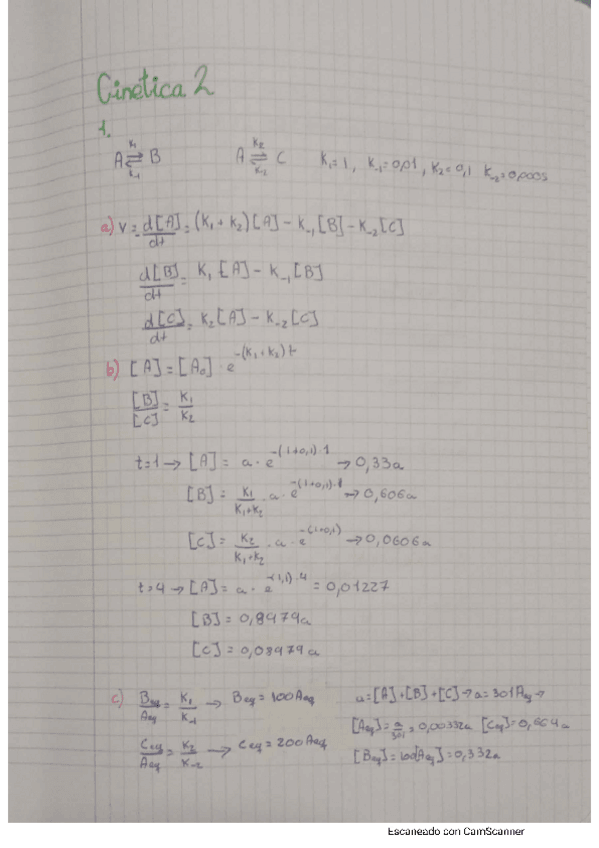 Cinética 2
1.
A ⇌ B K₁ K₋₁ A ⇌ C K₂ K₋₂ K₁=1, K₋₁=0,01, K₂=0,1 K₋₂=0,0005
a) v = d[A]/dt = (K₁+K₂)[A] - K₋₁[B] - K₋₂[C]
d[B]/dt = K₁[A] - K₋₁[B]
d[C]/dt = K₂[A] - K₋₂[C]
b) [A] = [A₀] · e^-(K₁+K₂)t
[B]/[C] = K₁/K₂
t=1 → [A] = a · e^-(1+0,1)·1 → 0,33a
[B] = K₁/K₁+K₂ · a · e^-(1+0,1)·1 → 0,606a
[C] = K₂/K₁+K₂ · a · e^-(1+0,1) → 0,0606a
t=4 → [A] = a · e^-(1,1)·4 = 0,01227
[B] = 0,8979a
[C] = 0,08979a
c) Beq/Aeq = K₁/K₋₁ → Beq = 100Aeq a=[A]+[B]+[C] → a=301Aeq →
[Aeq] = a/301 = 0,00332a [Ceq] = 0,664a
Ceq/Aeq = K₂/K₋₂ → Ceq = 200Aeq
[Beq] = 100[Aeq] = 0,332a
Escaneado con CamScanner